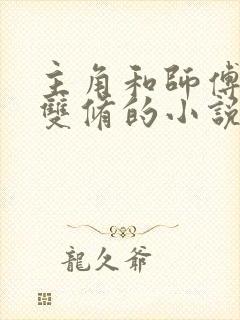 主角和師傅
雙脩的小說
龍久爺